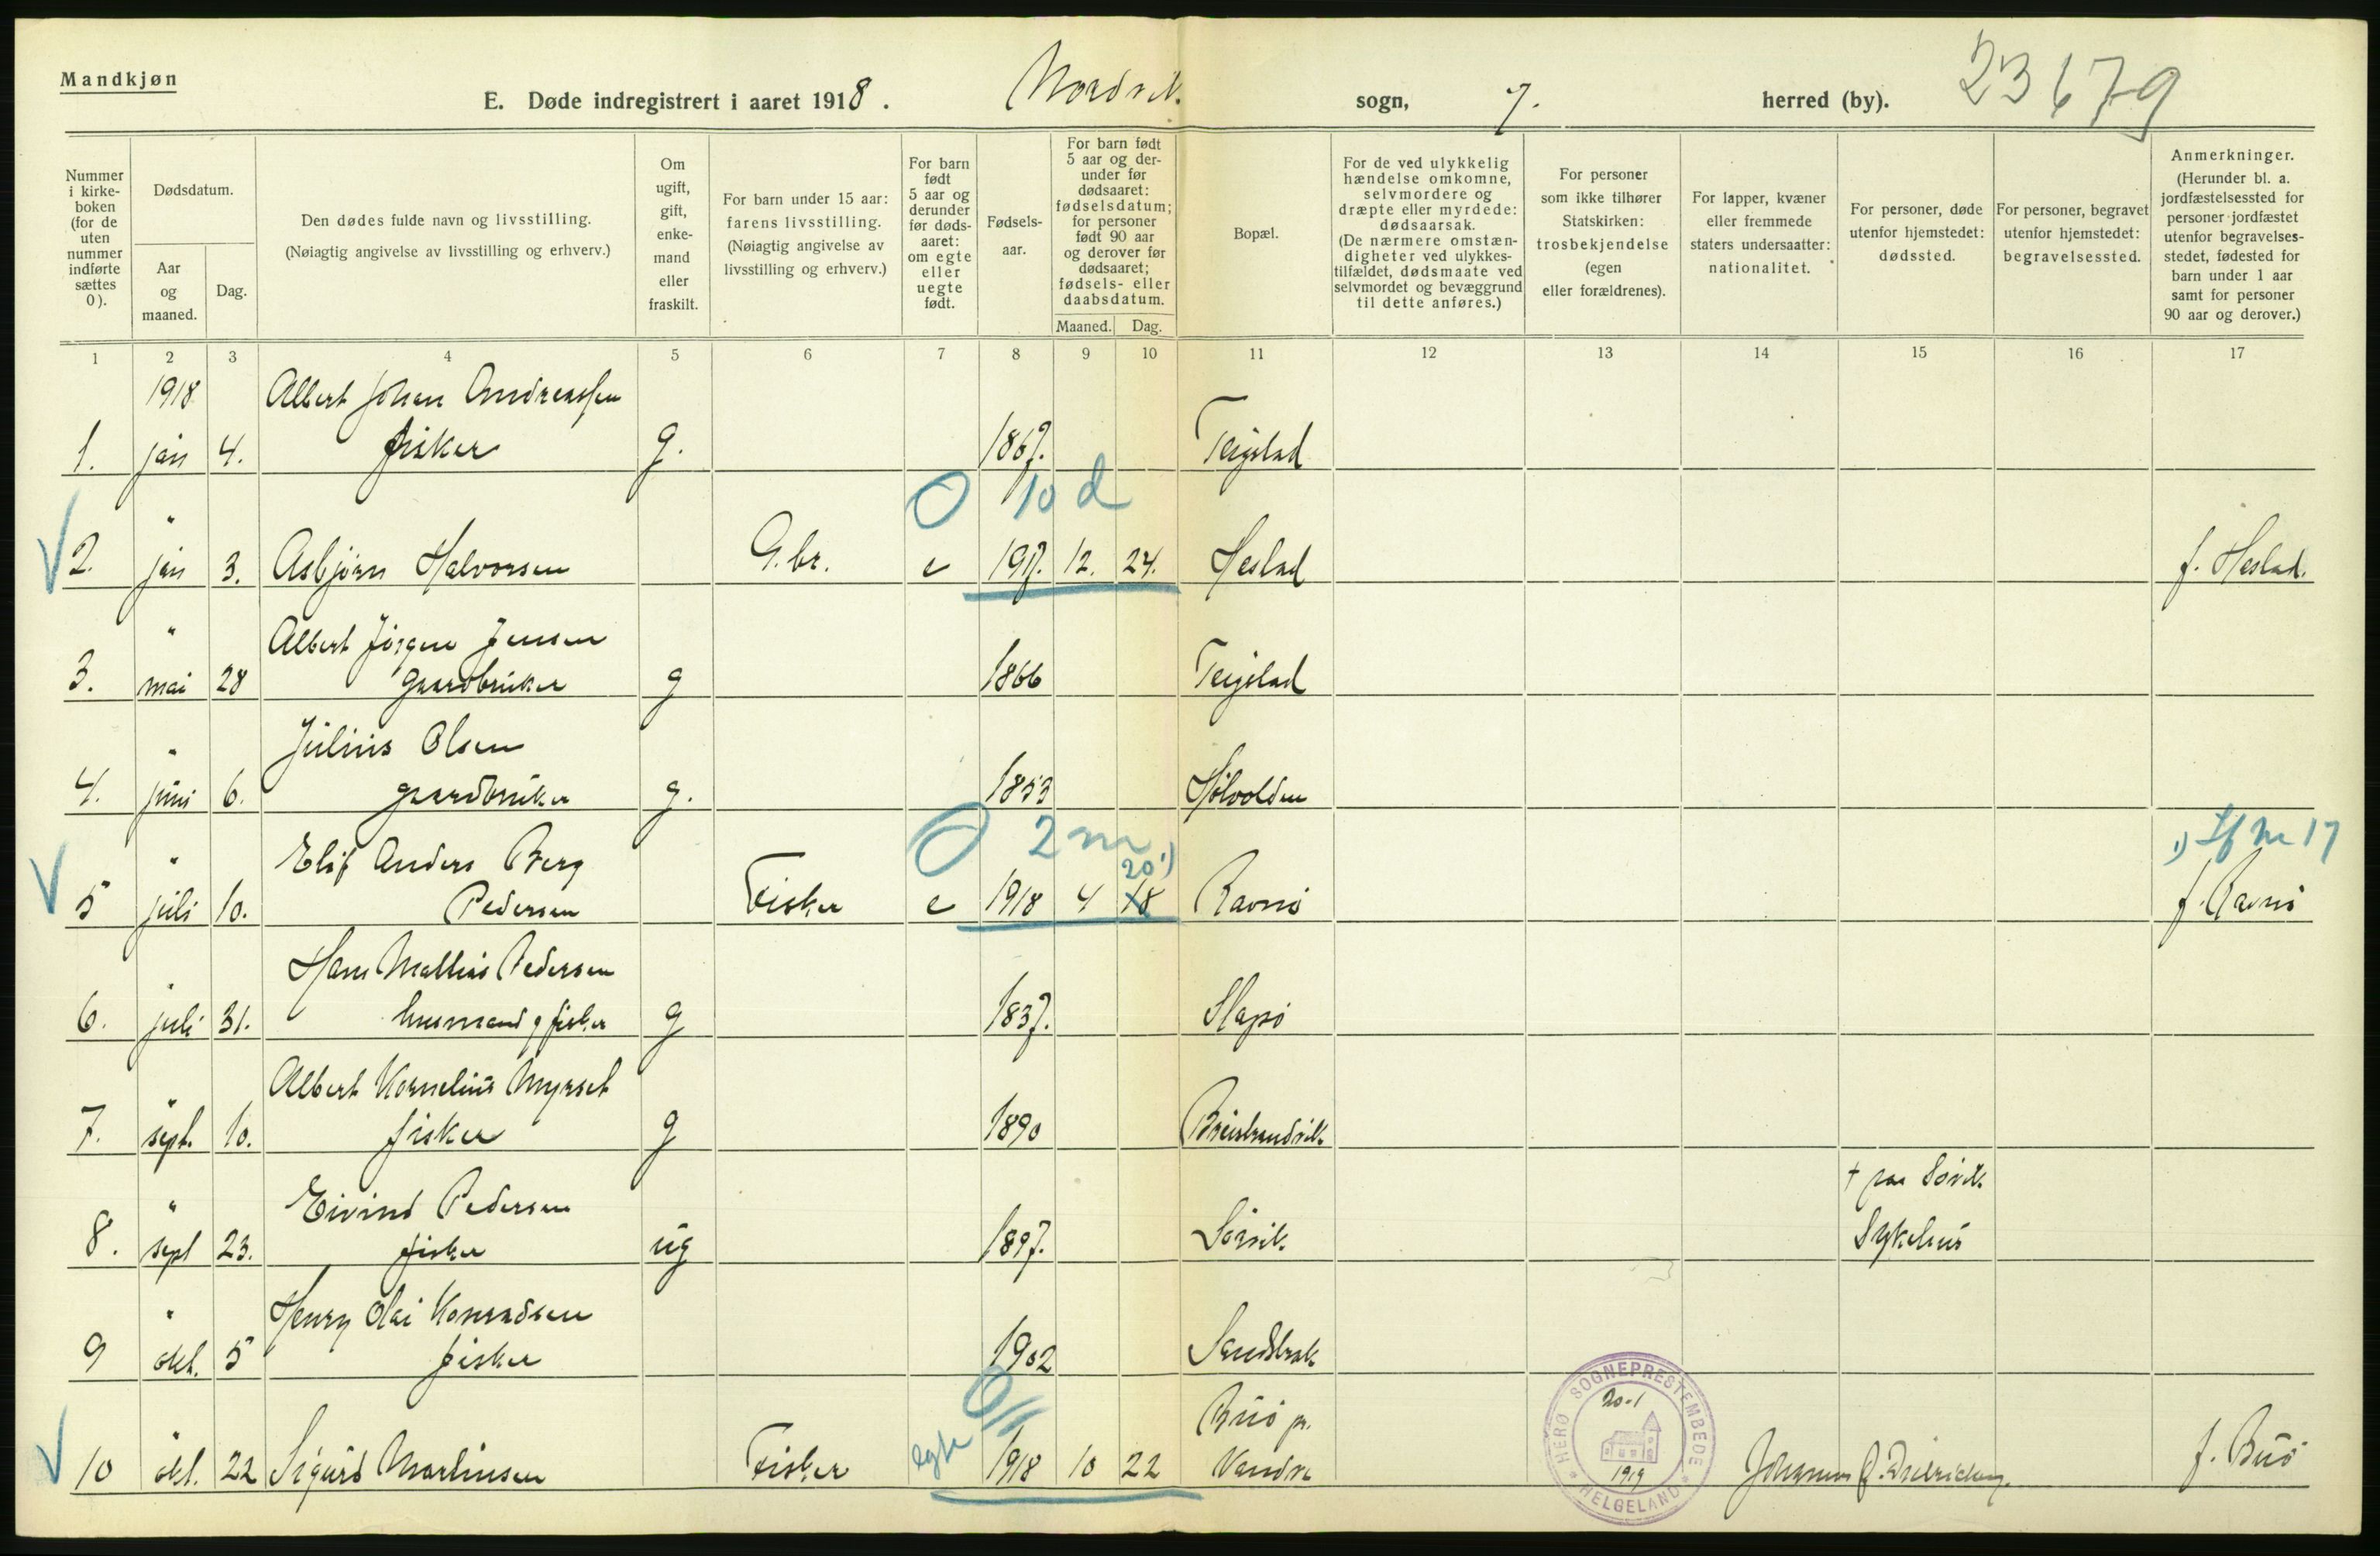 Mandkjøn
E. Døde indregistrert i aaret 1918. Nordvik. sogn, 7. herred (by). 23679
Nummer i kirke-boken (for de uten nummer indførte sættes 0).
Dødsdatum.
Aar og maaned.
Dag.
Den dødes fulde navn og livsstilling.
(Nøiagtig angivelse av livsstilling og erhverv.)
Om ugift, gift, enke-mand eller fraskilt.
For barn under 15 aar: farens livsstilling.
(Nøiagtig angivelse av livsstilling og erhverv.)
For barn født 5 aar og derunder før døds-aaret: om egte eller uegte født.
Fødsels-aar.
For barn født 5 aar og der-under før dødsaaret: fødselsdatum; for personer født 90 aar og derover før dødsaaret; fødsels- eller daabsdatum.
Maaned. Dag.
Bopæl.
For de ved ulykkelig hændelse omkomne, selvmordere og dræpte eller myrdede: dødsaarsak.
(De nærmere omstæn-digheter ved ulykkes-tilfældet, dødsmaate ved selvmordet og bevæggrund til dette anføres.)
For personer som ikke tilhører Statskirken: trosbekjendelse (egen eller forældrenes).
For lapper, kvæner eller fremmede staters undersaatter: nationalitet.
For personer, døde utenfor hjemstedet: dødssted.
For personer, begravet utenfor hjemstedet: begravelsessted.
Anmerkninger.
(Herunder bl. a. jordfæstelsessted for personer jordfæstet utenfor begravelses-stedet, fødested for barn under 1 aar samt for personer 90 aar og derover.)
1 2 3 4 5 6 7 8 9 10 11 12 13 14 15 16 17
1918 Albert Johan Andreassen
1. jan 4. fisker g. 1867. Teigstad
" 0 10 d
2. jan 3. Asbjørn Halvorsen G.br. e 1917. 12. 24. Hestad f. Hestad.
" Albert Jørgen Jensen
3. mai 28 gaardbruker g 1866 Teigstad
" Julius Olsen
4. juni 6. gaardbruker g. 1853 Hølvolden
" Elif Anders Berg 0 2 m 20¹) ¹) 17
5 juli 10. Pedersen Fisker e 1918 4 18 Ravnø f. Ravnø
" Hans Mathias Pedersen
6. juli 31. husmand g fisker g 1837. Slapø
" Albert Kornelius Myrset
7. sept. 10. fisker g 1890 Breistrandvik
" Eivind Pedersen † paa Søvik
8. sept 23. fisker ug 1897. Søvik Sykehus
" Henry Olai Konradsen
9 okt. 5 fisker 1902 Sandstrak
" 0 Buø pr.
10 okt. 22 Sigurd Martinsen Fisker egte 1918 10 22 Vandve f. Buø
HERØ SOGNEPRESTEMBEDE
20-1
1919
HELGELAND